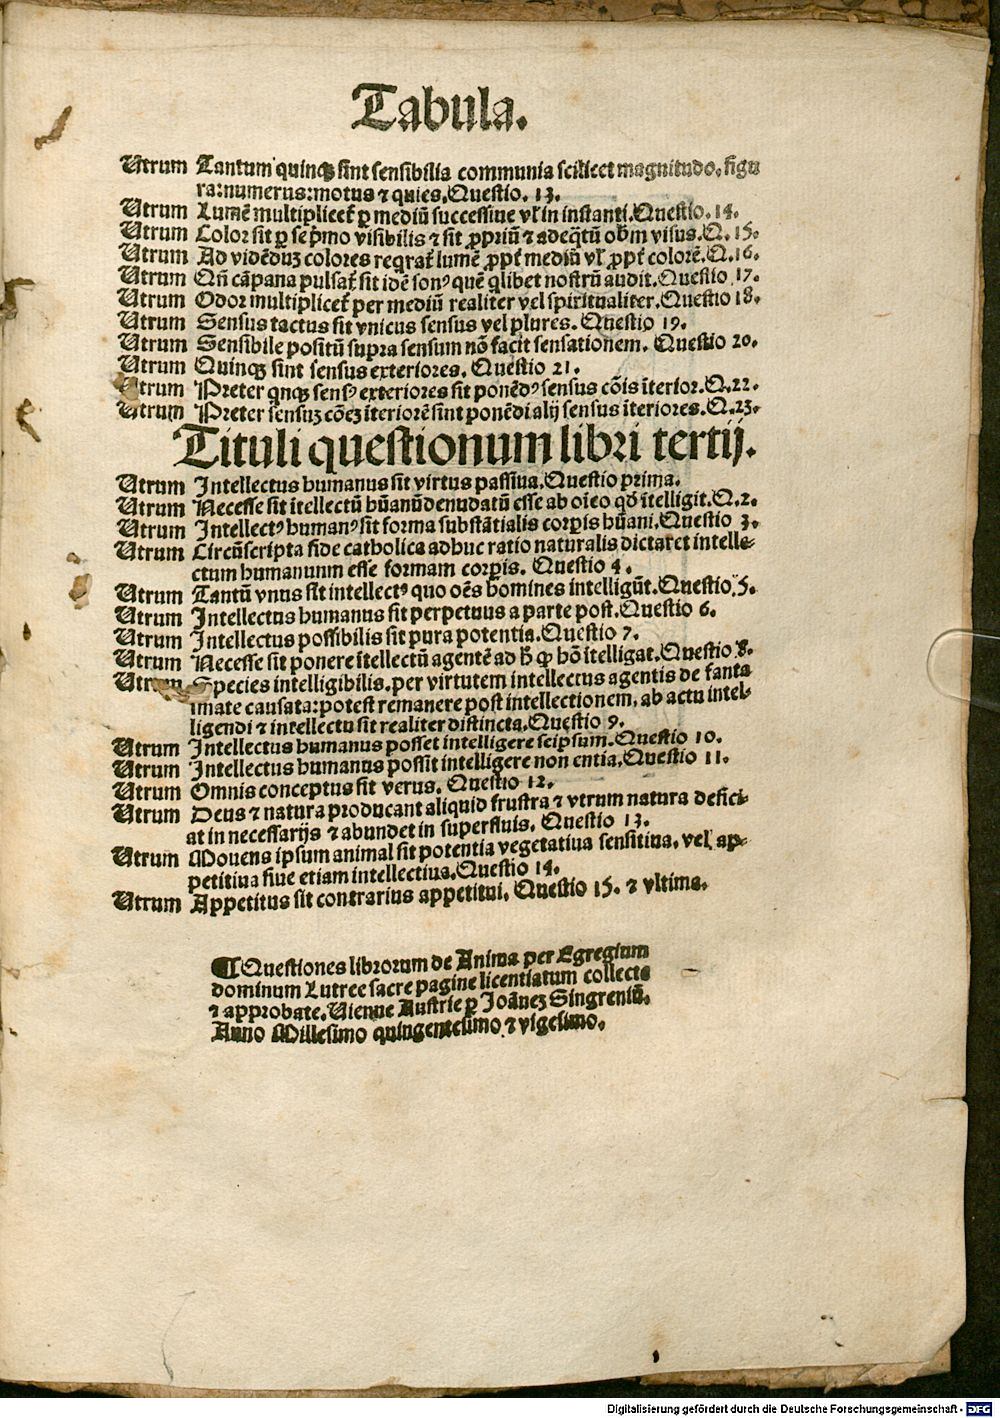 Tabula.
Utrum Tantum quinqꝫ sint sensibilia communia scilicet magnitudo, figu
ra: numerus: motus ⁊ quies. Questio. 13.
Utrum Lumē multiplicet̄ ꝑ mediū successiue vl̓ in instanti. Questio. 14.
Utrum Color sit ꝑ se pͥmo visibilis ⁊ sit ꝓpriū ⁊ adeq̄tū obm̄ visus. Q. 15.
Utrum Ad vidēduꝫ colores reqrat̄ lumē ꝓpt̄ mediū vl̓ ꝓpt̄ colorē. Q. 16.
Utrum Qn̄ cāpana pulsat̄ sit idē sonꝰ quē qlibet nostrū audit. Questio 17.
Utrum Odor multiplicet̄ per mediū realiter vel spiritualiter. Questio 18.
Utrum Sensus tactus sit vnicus sensus vel plures. Questio 19.
Utrum Sensibile positū supra sensum nō facit sensationem. Questio 20.
Utrum Quinqꝫ sint sensus exteriores. Questio 21.
Utrum Preter qnqꝫ sensꝰ exteriores sit ponēdꝰ sensus cōis īterior. Q. 22.
Utrum Preter sensuꝫ cōeꝫ īteriorē sint ponēdi alij sensus īteriores. Q. 23.
Tituli questionum libri tertij.
Utrum Intellectus humanus sit virtus passiua. Questio prima.
Utrum Necesse sit ītellectū hūanū denudatū esse ab oīeo qd̓ ītelligit. Q. 2.
Utrum Intellectꝰ humanꝰ sit forma substātialis corꝑis hūani. Questio 3.
Utrum Circūscripta fide catholica adhuc ratio naturalis dictaret intelle-
ctum humanum esse formam corꝑis. Questio 4.
Utrum Tantū vnus sit intellectꝰ quo oēs homines intelligūt. Questio. 5.
Utrum Intellectus humanus sit perpetuus a parte post. Questio 6.
Utrum Intellectus possibilis sit pura potentia. Questio 7.
Utrum Necesse sit ponere ītellectū agentē ad h̓ ꝙ hō ītelligat. Questio 8.
Utrum Species intelligibilis. per virtutem intellectus agentis de fanta
smate causata: potest remanere post intellectionem, ab actu intel-
ligendi ⁊ intellectu sit realiter distincta. Questio 9.
Utrum Intellectus humanus posset intelligere seipsum. Questio 10.
Utrum Intellectus humanus possit intelligere non entia. Questio 11.
Utrum Omnis conceptus sit verus. Questio 12.
Utrum Deus ⁊ natura producant aliquid frustra ⁊ vtrum natura defici-
at in necessarijs ⁊ abundet in superfluis. Questio 13.
Utrum Mouens ipsum animal sit potentia vegetatiua sensitiua, vel ap-
petitiua siue etiam intellectiua. Questio 14.
Utrum Appetitus sit contrarius appetitui. Questio 15. ⁊ vltima.
¶ Questiones librorum de Anima per Egregium
dominum Lutree sacre pagine licentiatum collecte
⁊ approbate. Uienne Austrie ꝑ Joāneꝫ Singreniū.
Anno Millesimo quingentesimo ⁊ vigesimo.
Digitalisierung gefördert durch die Deutsche Forschungsgemeinschaft - DFG